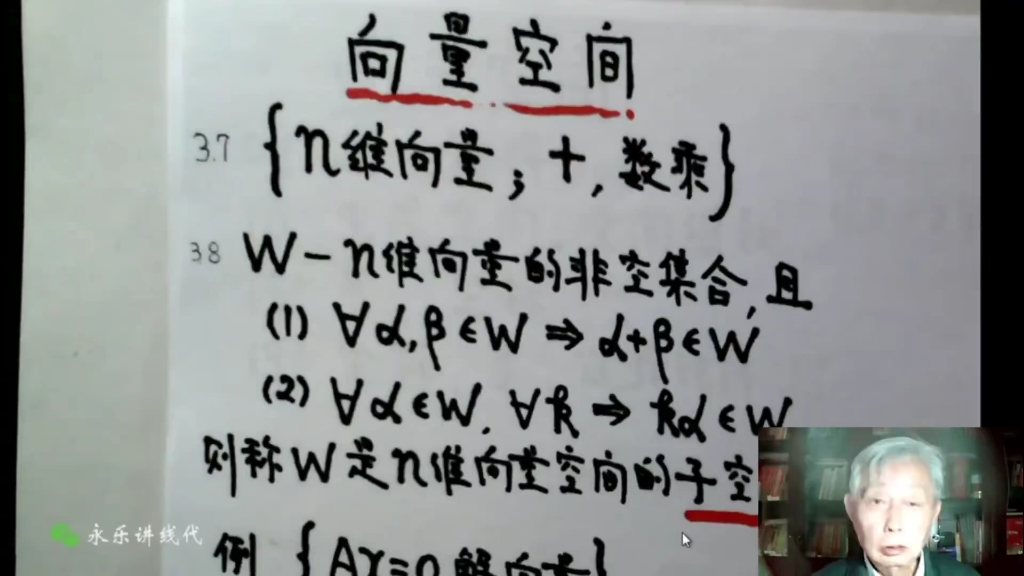 向量空间
3.7 {n维向量; +, 数乘}
3.8 W-n维向量的非空集合, 且
(1) ∀α,β∈W ⇒ α+β∈W
(2) ∀α∈W, ∀k ⇒ kα∈W
则称W是n维向量空间的子空
永乐讲线代
例 {Ax=0解向量}